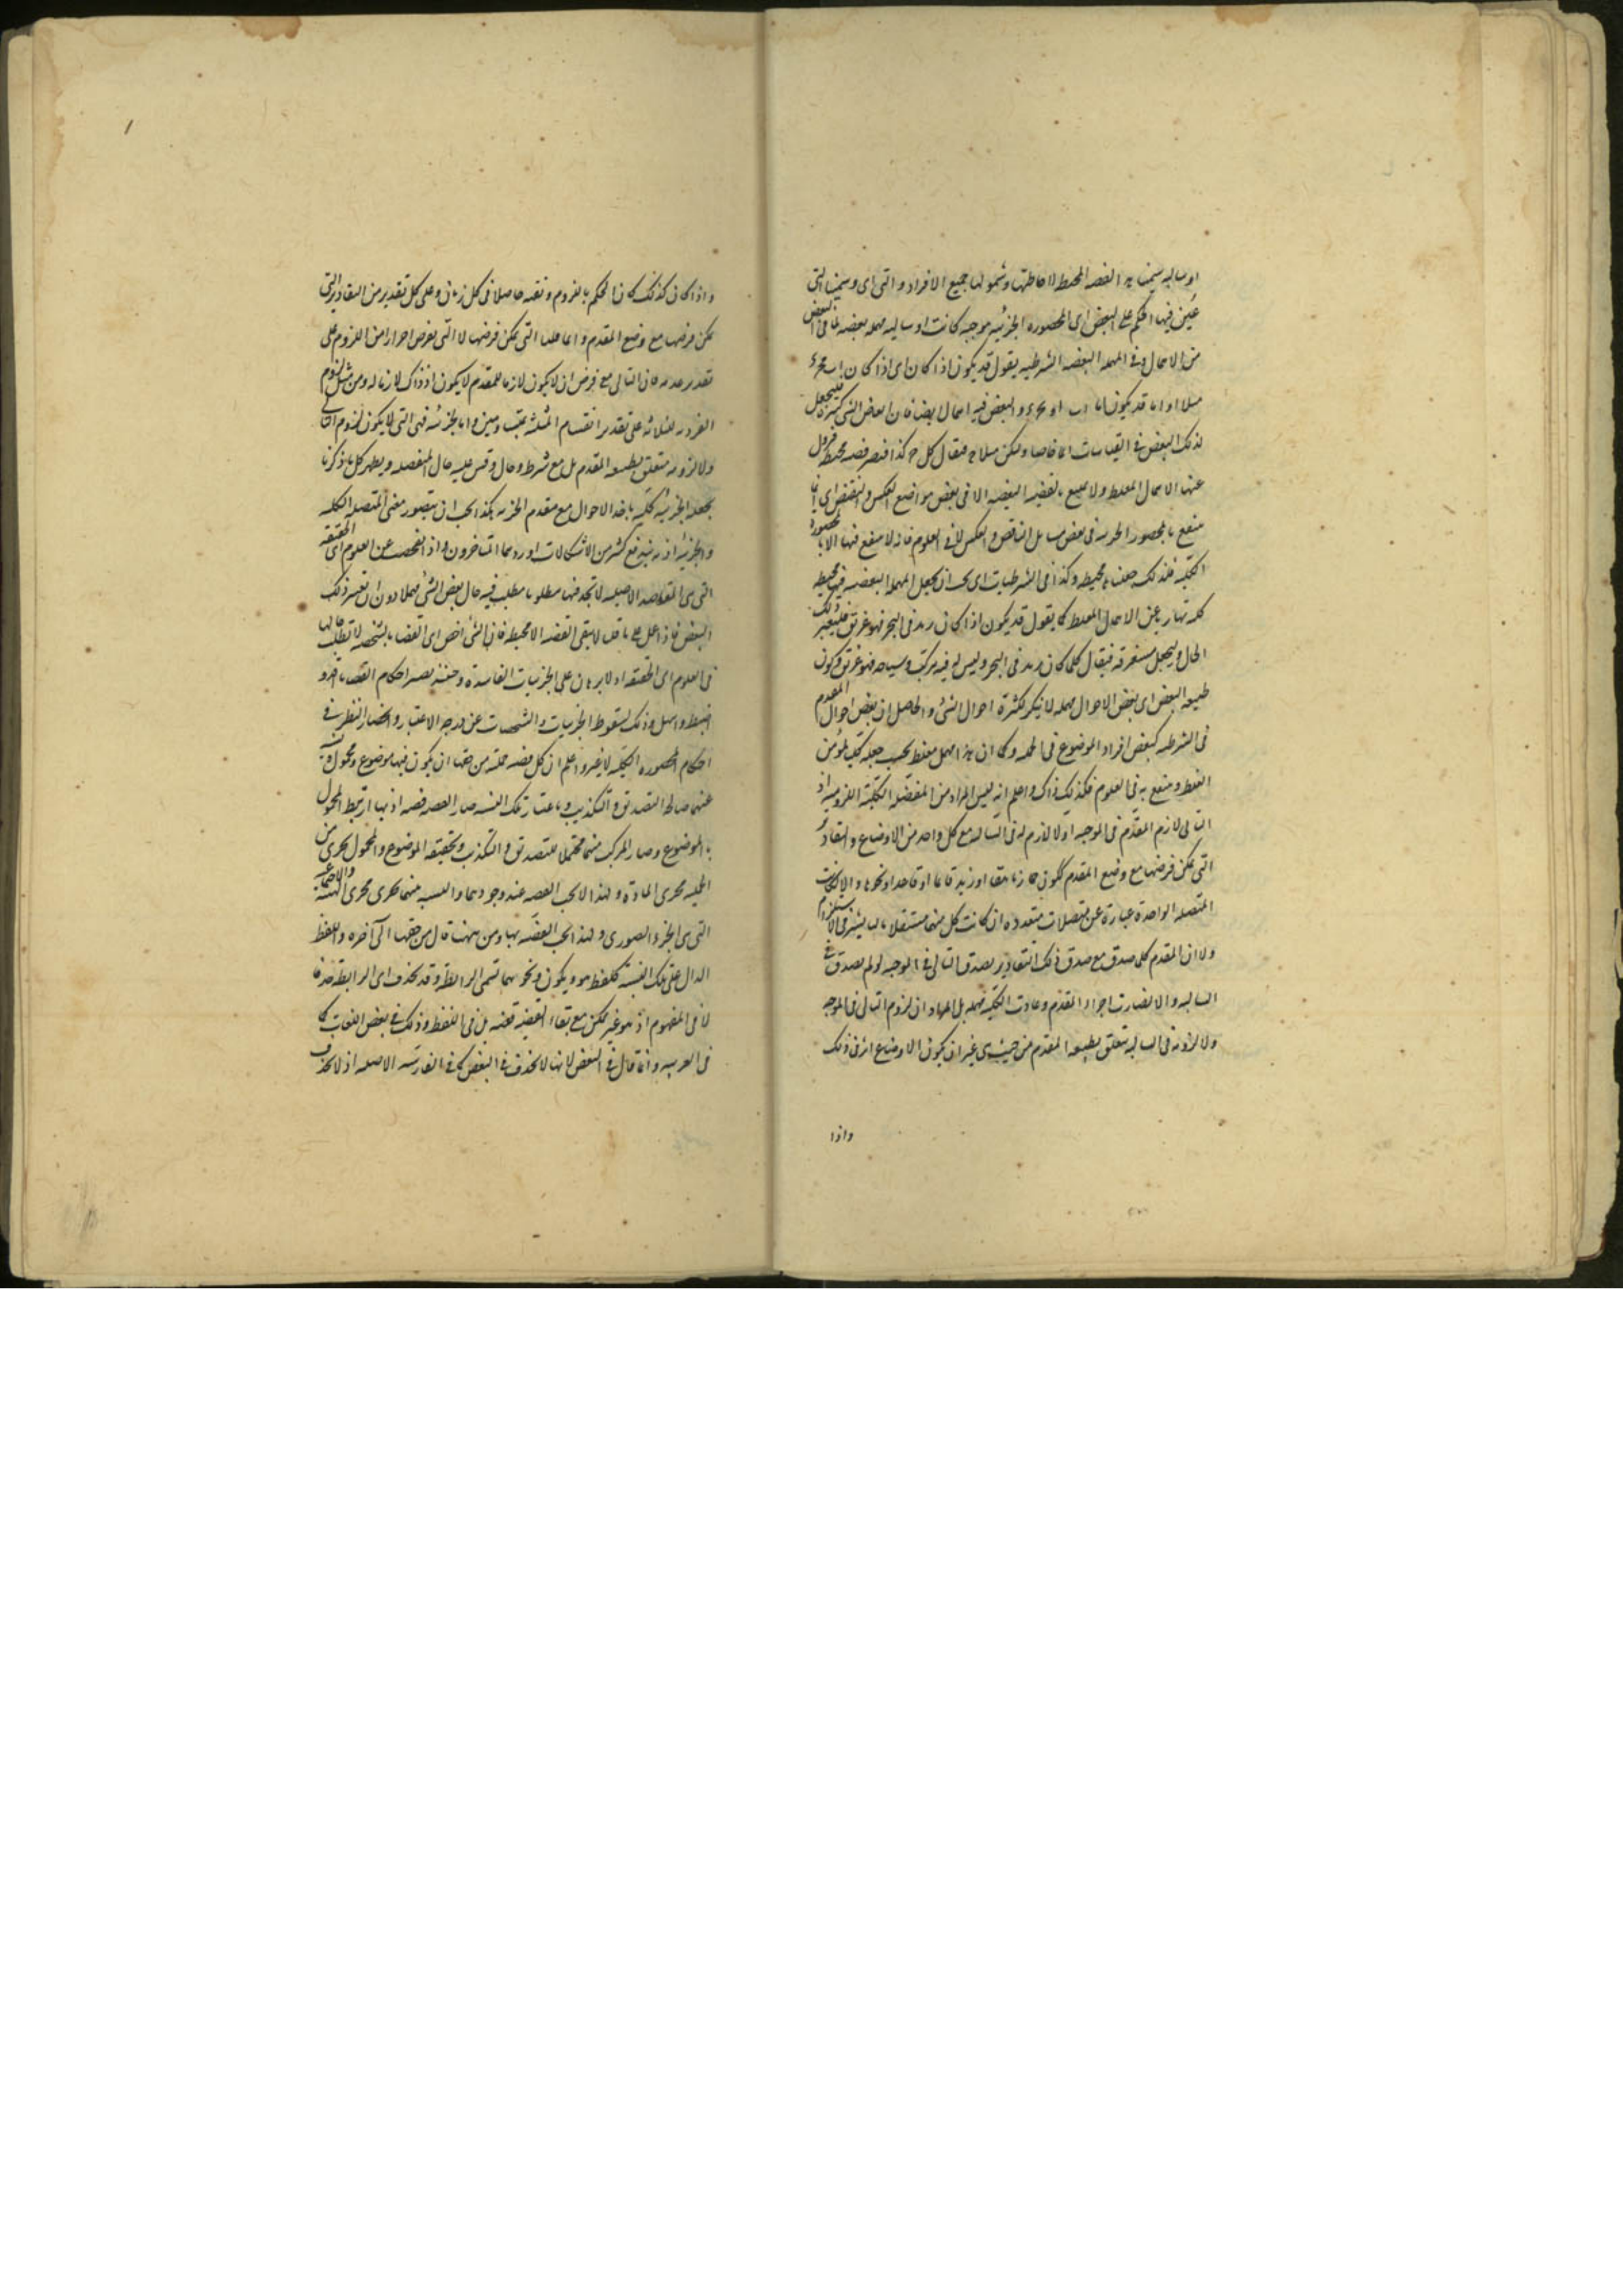 او سالبه سمينا به القضيه المحيطه لاحاطتها وشمولها جميع الافراد والتى اى وسمينا التى
عين فيها الحكم على البعض اى المحصوره الجزئيه موجبه كانت او سالبه مهمله بعضيه لما فى البعض
من الاهمال وفى المهمله البعضيه الشرطيه يقول قد يكون اذا كان اى اذا كان اب فج د
مثلا او اما قد يكون اما اب او ج د والبعض فيه اهمال ايضا فان ابعاض الشى كثيره فليجعل
لذلك البعض فى القياسات اسما خاصا وليكن مثلا ج فيقال كل ج كذا فتصير قضيه محيطه فيزول
عنها الاهمال المغلط ولا ينتفع بالقضيه البعضيه الا فى بعض مواضع العكس والنقض اى انما
ينتفع بالمحصوره الجزئيه فى بعض مسائل التناقض والعكس لا فى العلوم فانه لا ينتفع فيها الا بالمحصوره
الكليه فلذلك جعلناها محيطه وكذا فى الشرطيات اى يجب ان يجعل المهمله البعضيه فيها محيطه
كليه هاربا عن الاهمال المغلط كما يقول قد يكون اذا كان زيد فى البحر فهو غريق فليتعين ذلك
الحال وليجعل مستغرقه فيقال كلما كان زيد فى البحر وليس له فيه مركب وسباحه فهو غريق وكون
طبيعه البعض اى بعض الاحوال مهمله لا ينكر لكثرة احوال الشئ والحاصل ان بعض احوال المقدم
فى الشرطيه كبعض افراد الموضوع فى الحمليه وكما ان هذا مهمل مغلط يجب جعله كليا ليؤمن
الغلط وينتفع به فى العلوم فكذلك ذاك واعلم انه ليس المراد من المتصله الكليه اللزوميه اذ
التالى لازم المقدم فى الموجبه او لا لازم له فى السالبه مع كل واحد من الاوضاع والتقادير
التى يمكن فرضها مع وضع المقدم ككون الحمار ناهقا او زيد قائما او قاعدا او نحوها والا لكانت
المتصله الواحدة عبارة عن متصلات متعدده ان كانت كل منها مستقلا
ولا ان المقدم كلما صدق مع صدق ذلك التقادير يصدق التالى فى الموجبه او لم يصدق فى
السالبه والا لصارت اجزاء المقدم وعادت الكليه مهمله بل المراد ان لزوم التالى فى الموجبه
ولا لزومه فى السالبه يتعلق بطبيعه المقدم من حيث هى من غير ان يكون للاوضاع اثر فى ذلك
واذا
واذا كان كذلك كان الحكم باللزوم ونفيه حاصلا فى كل زمان وعلى كل تقدير من التقادير التى
يمكن فرضها مع وضع المقدم وانما قلنا التى يمكن فرضها لا التى تفرض احترازا من اللزوم على
تقدير عدمه فان التالى مع فرض ان لا يكون لازما للمقدم لا يكون اذ ذاك لازما له ومن مثل لزوم
الفرديه للثلاثه على تقدير انقسام الثلثه بمتساويين واما الجزئيه فهى التى لا يكون لزوم التالى
ولا لزومه متعلق بطبيعه المقدم بل مع شرط وحال وقس عليه حال المنفصله ويظهر كل ما ذكرنا
بجعل الجزئيه كليه باخذ الاحوال مع مقدم الجزئيه هكذا يجب ان يتصور معنى المتصله الكليه
والجزئيه اذ به يندفع كثير من الاشكالات اوردها المتاخرون واذا تفحصت عن العلوم اى الحقيقيه
التى هى المقاصد الاصليه لا تجد فيها مطلوبا يطلب فيه حال بعض الشئ مهملا دون ان يعين ذلك
البعض فاذا عمل على ما قلنا لا يبقى القضيه الا محيطه فان الشئ اخص اى القضايا الشخصيه لا تطلب حالها
فى العلوم اى الحقيقيه اذ لا برهان على الجزئيات الفاسدة وحينئذ يصير احكام القضايا اقل و
اضبط واسهل وذلك لسقوط الجزئيات والشخصيات عن درجه الاعتبار وانحصار النظر فى
احكام المحصوره الكليه لا غير واعلم ان كل قضيه حمليه من حقها ان يكون فيها موضوع ومحمول ونسبه
بينهما صالحه للتصديق والتكذيب وباعتبار تلك النسبه صارت القضيه قضيه اذ بها ارتبط المحمول
بالموضوع وصار المركب منهما محتملا للتصديق والتكذيب وتحقيقه الموضوع والمحمول يجرى من
الحمليه مجرى الماده ولهذا لا يجب القضيه عند وجودهما والنسبه بينهما يجرى مجرى الهيئه والاجتماعيه
التى هى الجزء الصورى ولهذا يجب القضيه بها ومن ههنا قال من حقها الى آخره واللفظ
الدال على تلك النسبه كلفظ هو ويكون ونحوهما تسمى الرابطه وقد تحذف اى الرابطه حذفا
لا فى المفهوم اذ هو غير ممكن مع بقاء القضيه قضيه بل فى اللفظ وذلك فى بعض اللغات كما
فى العربيه وانما قال فى البعض لانها لا تحذف فى البعض كما فى الفارسيه الاصليه اذ لا تحذف